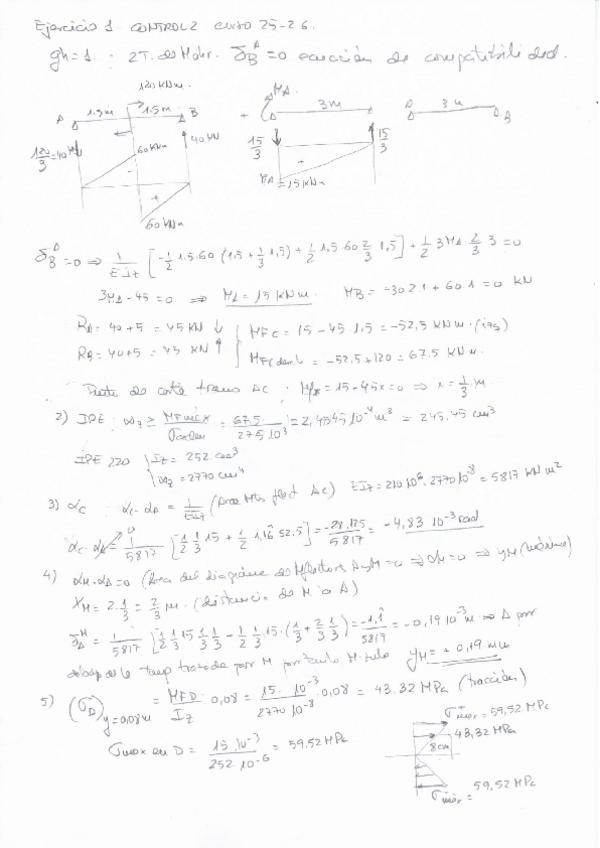 Ejercicio 1 CONTROL 2 CURSO 25-26.
gh=1. : 2T. de Mohr. δ_B^A = 0 ecuación de compatibilidad.
120 kNm.
A 1.5m 1.5m B
120/3 = 40 kN
60 kNm
40 kN
- +
60 kNm
+ M_A. 3m
15/3 15/3
+
M_A = 15 kNm
A 3m B
δ_B^A = 0 ⇒ 1/EIz [ -1/2 1.5·60 (1.5 + 1/3 1,5) + 1/2 1.5·60 2/3 1,5 ] + 1/2 3M_A 2/3 3 = 0
3M_A - 45 = 0 ⇒ M_A = 15 kNm. M_B = -30·2·1 + 60·1 = 0 kN
R_A = 40 + 5 = 45 kN ↓
R_B = 40 + 5 = 45 kN ↑
M_FC = 15 - 45·1.5 = -52,5 kNm. (izq)
M_FC dcha = -52.5 + 120 = 67.5 kNm.
Punto de corte tramo AC : M_F = 15 - 45x = 0 ⇒ x = 1/3 m.
2) IPE : ω_z ≥ MFmax/σadm = 67.5/275·10³ = 2,4545·10⁻⁴ m³ = 245.45 cm³
IPE 220 { Iz = 252. cm³
ωz = 2770 cm⁴
3) α_C : α_C - α_A = 1/EIz (Área Mts flect AC) EIz = 210·10⁶·2770·10⁻⁸ = 5817 kN m²
α_C - α_A = 1/5817 [ 1/2 1/3 15 + 1/2 1,16 52,5 ] = -28,125/5817 = -4,83 10⁻³ rad
4) α_M - α_A = 0 (Área del diagrama de Mflectores A y M = 0 ⇒ α_M = 0 ⇒ y_M (máxima)
X_M = 2·1/3 = 2/3 m. (distancia de M a A)
δ_A^M = 1/5817 [ 1/2 1/3 15 1/3 1/3 - 1/2 1/3 15·(1/3 + 2/3 1/3) ] = -1,1/5817 = -0,19 10⁻³ m ⇒ A por
debajo de la tang trazada por M por tanto M sube y_M = +0,19 mm
5) (σ_D) y=0,08m = MFD/Iz · 0,08 = 15·10⁻³/2770·10⁻⁸ · 0,08 = 43.32 MPa (tracción)
σmax en D = 15·10⁻³/252·10⁻⁶ = 59,52 MPa
σ⁺max = 59,52 MPa
43,32 MPa
8cm
σ⁻max = 59,52 MPa